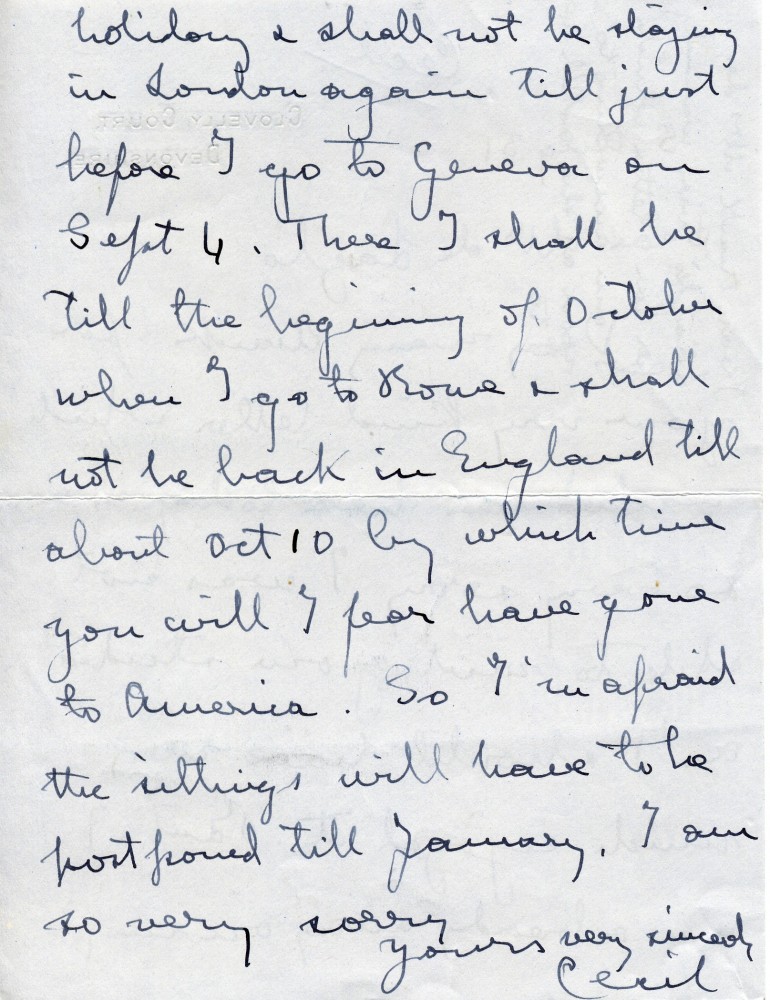 holiday & shall not be staying
in London again till just
before I go to Geneva on
Sept 4. There I shall be
till the beginning of October
when I go to Rome & shall
not be back in England till
about Oct 10 by which time
you will I fear have gone
to America. So I'm afraid
the sittings will have to be
postponed till January. I am
so very sorry
yours very sincerely
Cecil
CLOVELLY COURT
DEVONSHIRE